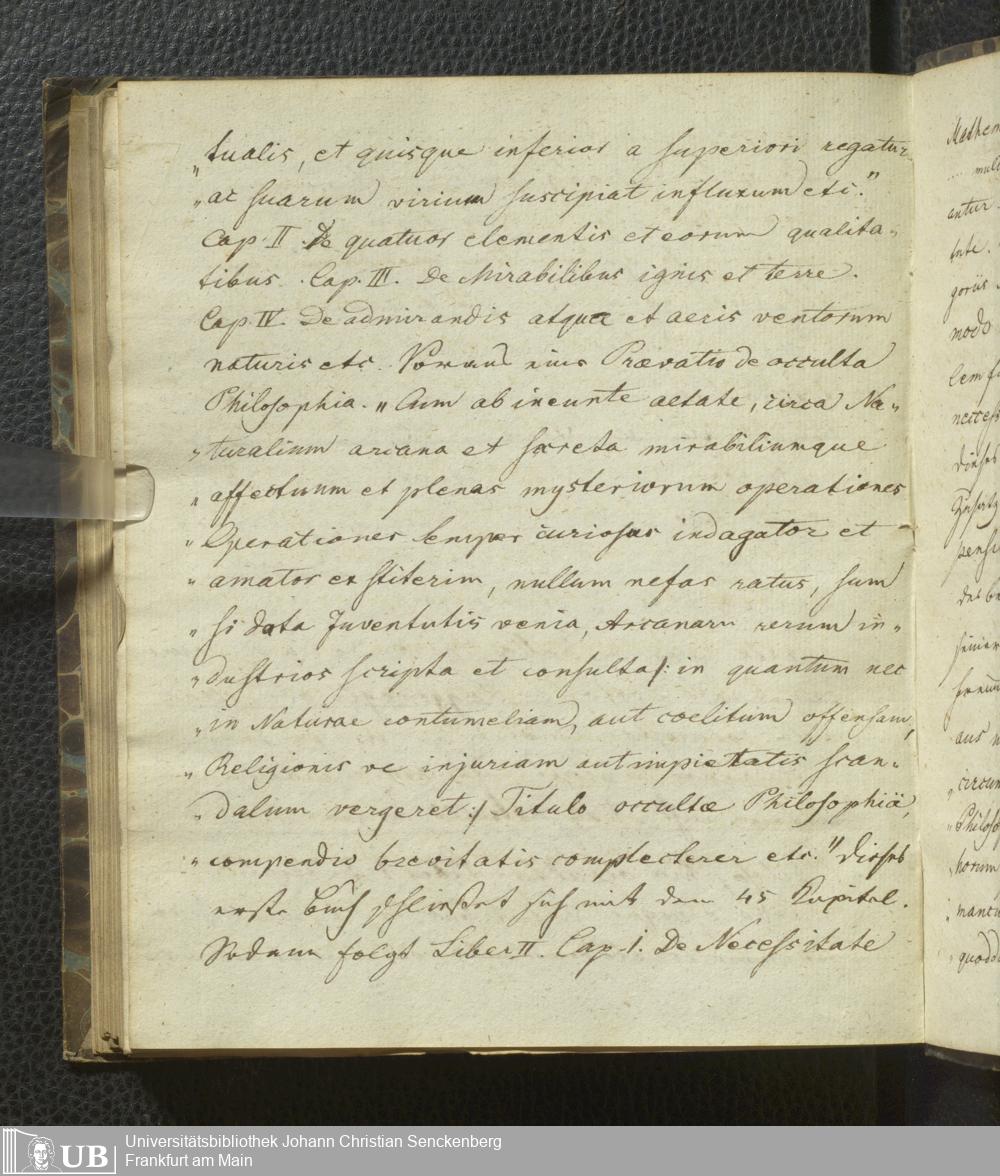 „tualis, et quisque inferior a superiori regatur
„ac suarum virium suscipiat influxum etc."
Cap. II. De quatuor elementis et eorum qualita-
tibus. Cap. III. De Mirabilibus ignis et terre.
Cap. IV. De admirandis atque et aeris ventorum
naturis etc. eius Praevatio de occulta
Philosophia. „Cum ab ineunte aetate, circa Na„
„turalium arcana et secreta mirabiliumque
„affectuum et plenas mysteriorum operationes
„Operationes semper curiosus indagator et
„amator exstiterim, nullum nefas ratus, sum
„si data Juventutis venia, Arcanaru rerum in„
„dustrios scripta et consulta /: in quantum nec
„in Naturae contumeliam, aut coelitum offensam,
„Religionis ve injuriam aut impietatis scan-
„dalum vergeret :/ Titulo occultae Philosophiä,
„compendio brevitatis complecterer etc." Dieses
erste Buch schließet sich mit dem 45 Kapitel.
Sodann folgt Liber II. Cap. 1. De Necessitate
Mathem
antur
goriis
modo
necess
dieses
aus
„circum
„Philoso
„horum
„quodd
UB
Universitätsbibliothek Johann Christian Senckenberg
Frankfurt am Main